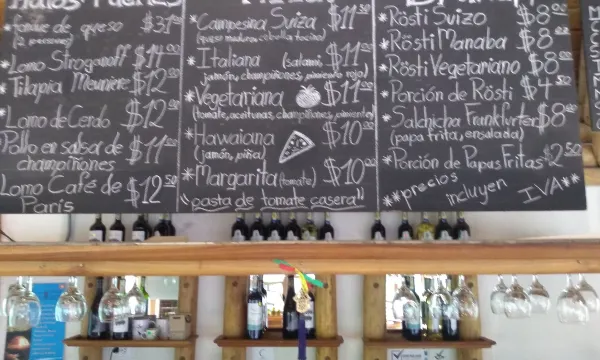 Platos Fuertes
*fondue de queso $31
(2 personas)
*Lomo Stroganoff $14
*Tilapia Meuniere $12
*Lomo de Cerdo $12
Pollo en salsa de $11
champiñones
Lomo Café de $12 50
París
*Campesina Suiza $11 50
(queso maduro, cebolla, tocino)
*Italiana (salami, $11 00
jamón, champiñones, pimiento rojo)
*Vegetariana $11 00
(tomate, aceitunas, champiñones, pimiento)
*Hawaiana $10 00
(jamón, piña)
*Margarita (tomate) $10 00
"pasta de tomate casera"
*Rösti Suizo $8
*Rösti Manaba $8
*Rösti Vegetariano $8
*Porción de Rösti $4
*Salchicha Frankfurter $8
(papa frita, ensalada)
*Porción de Papas Fritas $2 50
**precios incluyen IVA**